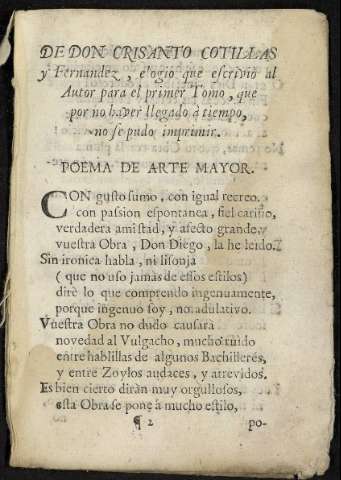 DE DON CRISANTO COTILLAS
y Fernandez, elogio que escriviò al
Autor para el primer Tomo, que
por no haver llegado à tiempo,
no se pudo imprimir.
POEMA DE ARTE MAYOR.
CON gusto sumo, con igual recreo,
con passion espontanea, fiel cariño,
verdadera amistad, y afecto grande,
vuestra Obra, Don Diego, la he leido.
Sin ironica habla, ni lisonja
( que no uso jamas de essos estilos)
dirè lo que comprendo ingenuamente,
porque ingenuo soy, no adulativo.
Vuestra Obra no dudo causarà
novedad al Vulgacho, mucho ruido
entre hablillas de algunos Bachilleres,
y entre Zoylos audaces, y atrevidos.
Es bien cierto diràn muy orgullosos,
esta Obra se pone à mucho estilo,
¶ 2 po-